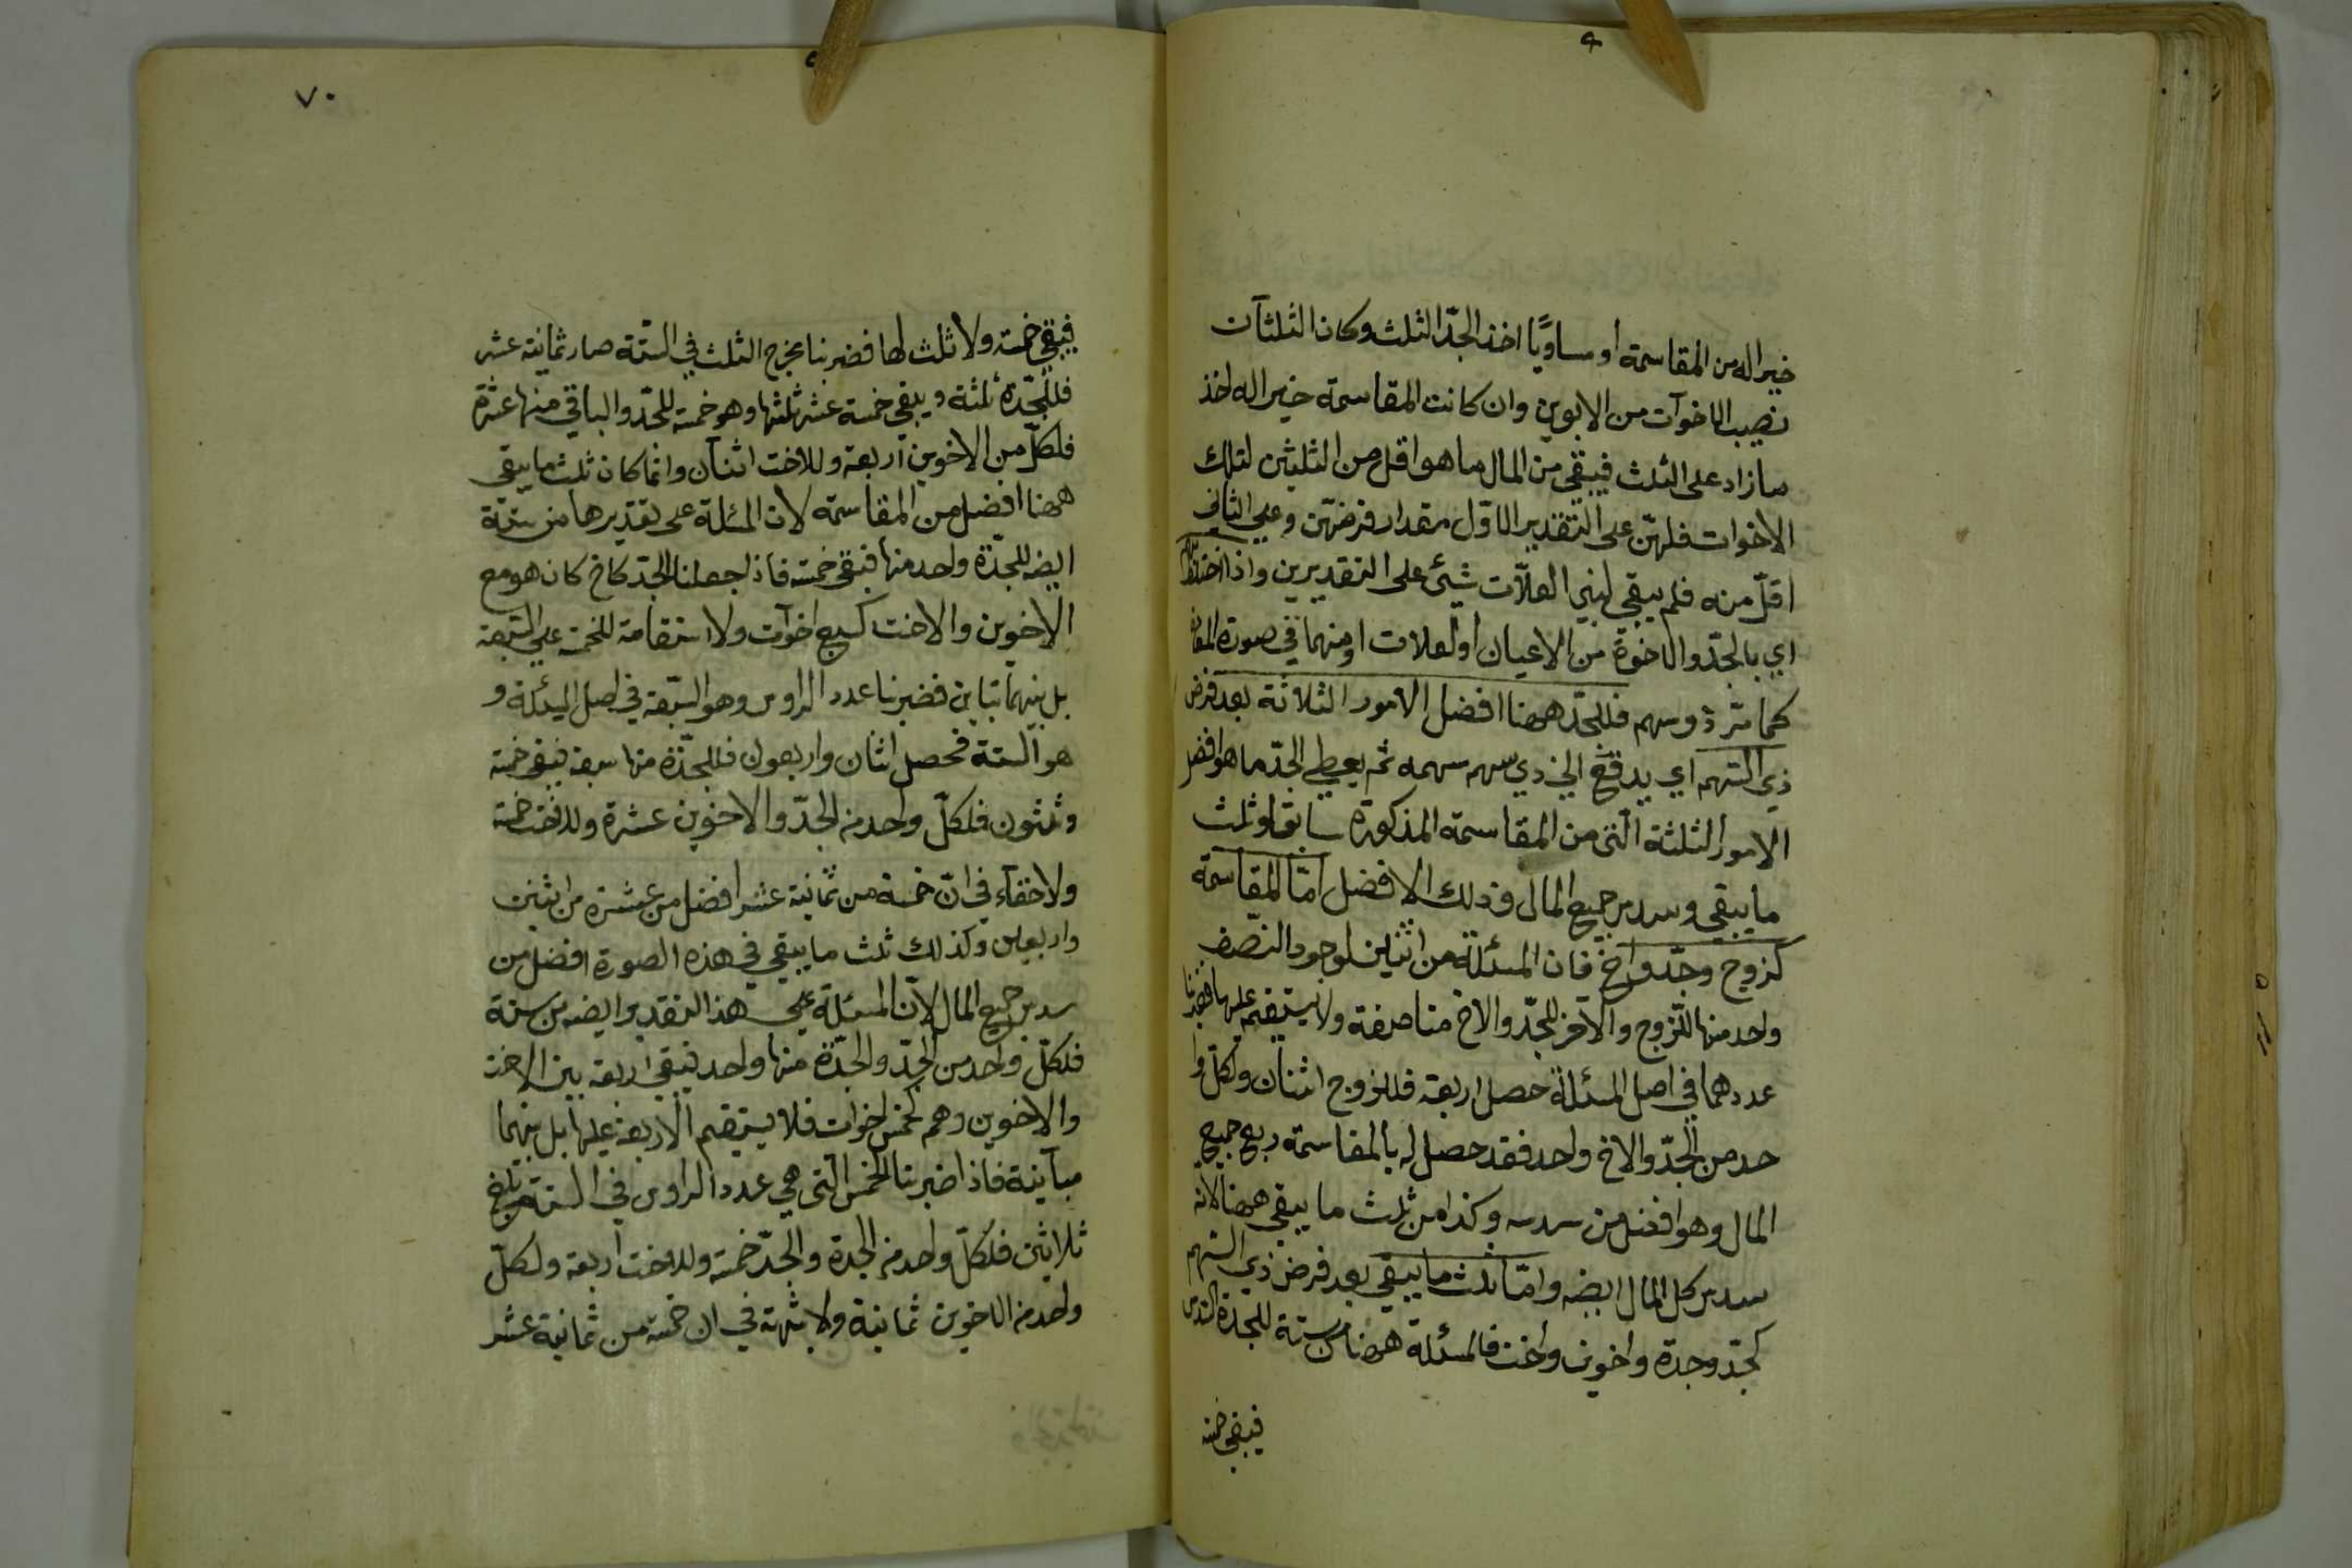 خيرا له من المقاسمة او مساويًا اخذ الجدّ الثلث وكان الثلثان
نصيب الاخوات من الابوين وان كانت المقاسمة خيرا له اخذ
ما زاد على الثلث فيبقي من المال ما هو اقل من الثلثين لتلك
الاخوات فلهنّ على التقدير الاوّل مقدار فرضهنّ وعلى الثاني
اقلّ منه فلم يبقي لبني العلّات شيئ على التقديرين واذا اختلط بهم
اي بالجدّ والاخوة من الاعيان او لعلات او منهما في صورة المقا
كما مرّ ذو سهم فللجدّ ههنا افضل الامور الثلاثة بعد فرض
ذي السّهم اي يدفع الى ذي سهم سهمه ثم يعطي الجدّ ما هو افضل
الامور الثلثة الّتى من المقاسمة المذكورة سابقا وثلث
ما يبقي وسدس جميع المال وذلك الافضل امّا المقاسمة
كزوج وجدّ واخ فان المسئلة من اثنين لوجود النّصف
واحد منها للزوج والآخر للجدّ والاخ مناصفة ولا يستقيم عليهما فضربنا
عددهما في اصل المسئلة حصل اربعة فللزوج اثنان ولكل وا
حد من الجدّ والاخ واحد فقد حصل له بالمقاسمة ربع جميع
المال وهو افضل من سدسه وكذا من ثلث ما يبقي ههنا لانه
سدس كل المال ايضه وامّا ثلث ما يبقي بعد فرض ذي السّهم
كجدّ وجدة واخوين واخت فالمسئلة ههنا من ستة للجدة السّدس
فيبقي خمسة
٧٠
فيبقي خمسة ولا ثلث لها فضربنا مخرج الثلث في السّتة صار ثمانية عشر
فللجدّة ثلثة ويبقي خمسة عشر ثلثها وهو خمسة للجدّ والباقي منها عشرة
فلكلّ من الاخوين اربعة وللاخت اثنان وانما كان ثلث ما يبقى
ههنا افضل من المقاسمة لان المسئلة على تقديرها من ستة
ايضه للجدّة واحد منها فيبقي خمسة فاذ اجعلنا الجدّ كاخ كان هو مع
الاخوين والاخت كسبع اخوات ولا استقامة للخمسة على السّبعة
بل بينهما تباين فضربنا عدد الراوس وهو السّبعة في اصل المسئلة و
هو السّتة فحصل اثنان واربعون فللجدّة منها سبعة فيبقي خمسة
وثلثون فلكلّ واحد من الجدّ والاخوين عشرة وللاخت خمسة
ولا خفاء في انّ خمسة من ثمانية عشر افضل من عشرة من اثنين
واربعين وكذلك ثلث ما يبقي في هذه الصورة افضل من
سدس جميع المال لانّ المسئلة على هذا التقدير ايضه من ستة
فلكلّ واحد من الجدّ والجدّة منها واحد فيبقي اربعة بين الاخت
والاخوين وهم كخمس اخوات فلا يستقيم الاربعة عليها بل بينهما
مباينة فاذا ضربنا الخمس الّتى هي عدد الراوس في السّتة يبلغ
ثلاثين فلكلّ واحد من الجدة والجدّ خمسة وللاخت اربعة ولكلّ
واحد من الاخوين ثمانية ولا شبهة في ان خمسة من ثمانية عشر